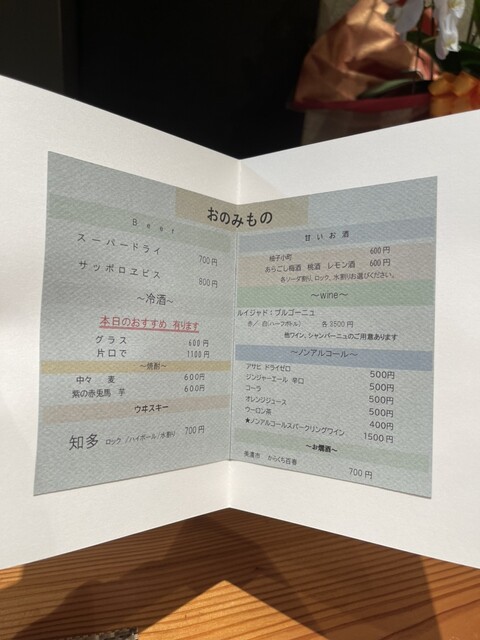 おのみもの
Beer
スーパードライ 700円
サッポロヱビス 800円
~冷酒~
本日のおすすめ 有ります
グラス 600円
片口で 1100円
~焼酎~
中々 麦 600円
紫の赤兎馬 芋 600円
ウヰスキー
知多 ロック/ハイボール/水割り 700円
甘いお酒
柚子小町 600円
あらごし梅酒 桃酒 レモン酒 600円
各ソーダ割り、ロック、水割りお選びください。
~wine~
ルイジャド:ブルゴーニュ
赤/白(ハーフボトル) 各3500円
他ワイン、シャンパーニュのご用意あります
~ノンアルコール~
アサヒ ドライゼロ 500円
ジンジャーエール 辛口 500円
コーラ 500円
オレンジジュース 500円
ウーロン茶 400円
★ノンアルコールスパークリングワイン 1500円
~お燗酒~
美濃市 からくち百春 700円